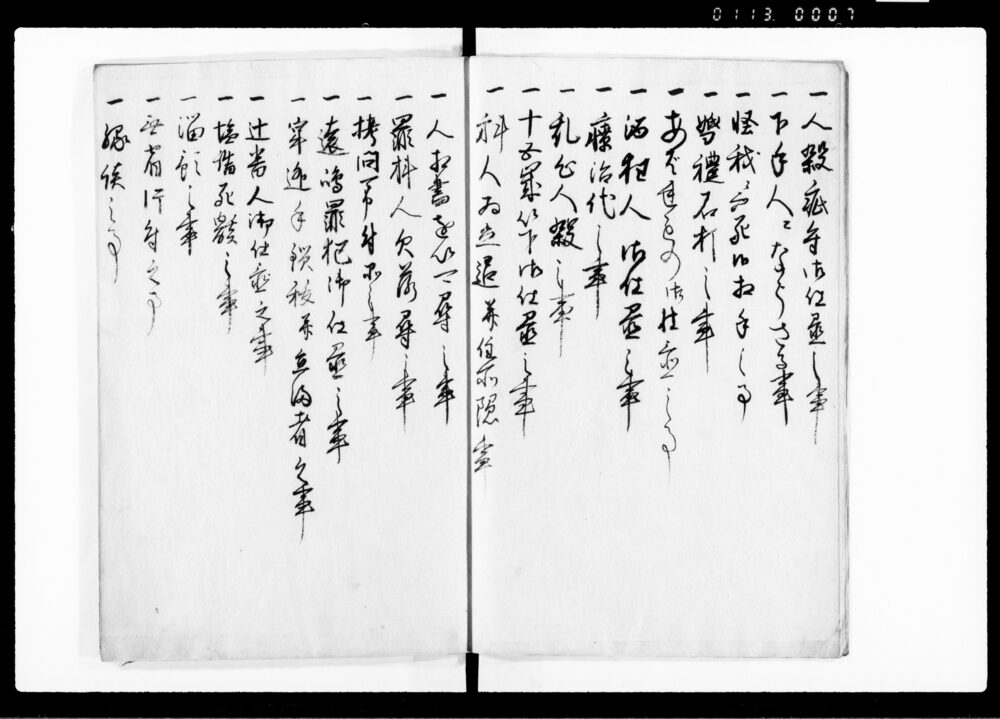 0113 0007
一人殺疵付御仕置之事
一下手人ニなるへき事
一怪我ニ而死候相手之事
一婚禮石打之事
一あばれもの御仕置之事
一酒狂人御仕置之事
一療治代之事
一乱心人殺之事
一十五歳以下御仕置之事
一科人為立退并住所隠事
一人相書を以可尋之事
一罪科人欠落尋之事
一拷問可申付品之事
一遠嶋罪犯御仕置之事
一牢逃手鎖
一辻番人御仕置之事
一塩詰死骸之事
一溜預之事
一無宿片付之事
一縁談之事